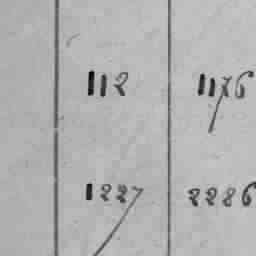 112 1176
1227 2286